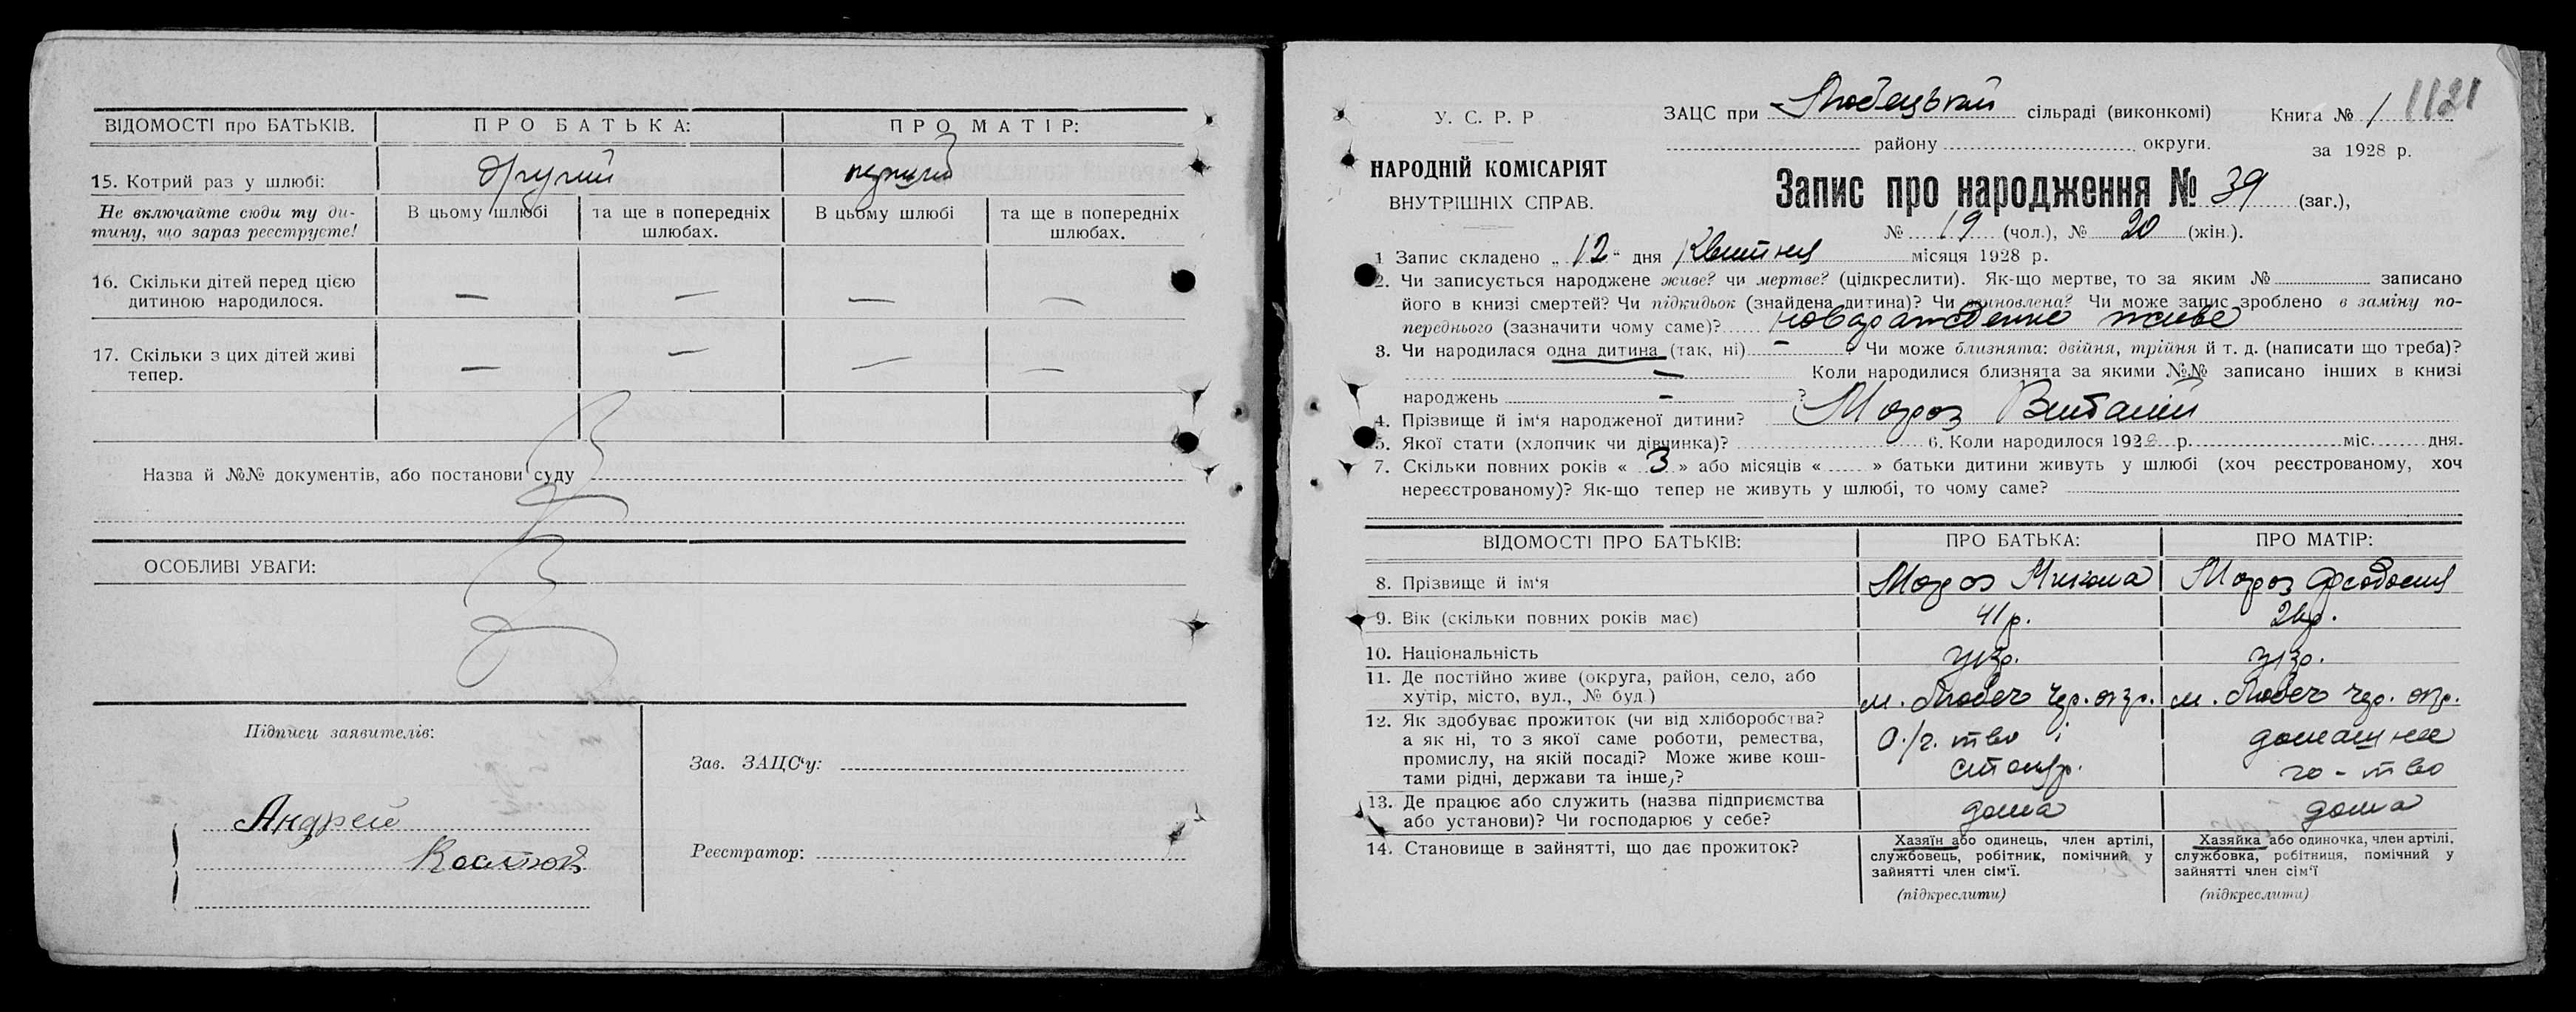 ВІДОМОСТІ про БАТЬКІВ. ПРО БАТЬКА: ПРО МАТІР:
15. Котрий раз у шлюбі: другий перший
Не включайте сюди ту ди-
тину, що зараз реєструєте!
В цьому шлюбі та ще в попередніх шлюбах. В цьому шлюбі та ще в попередніх шлюбах.
16. Скільки дітей перед цією
дитиною народилося. — — — —
17. Скільки з цих дітей живі
тепер. — — — —
Назва й №№ документів, або постанови суду
ОСОБЛИВІ УВАГИ:
Підписи заявителів:
Андрей
Зав. ЗАЦС'у:
Реєстратор:
У. С. Р. Р
НАРОДНІЙ КОМІСАРІЯТ
ВНУТРІШНІХ СПРАВ.
ЗАЦС при Любецькій сільраді (виконкомі)
району округи.
Книга № 1 1121
за 1928 р.
Запис про народження № 39 (заг.),
№ 19 (чол.), № 20 (жін.).
1 Запис складено „ 12 " дня Квітня місяця 1928 р.
2. Чи записується народжене живе? чи мертве? (підкреслити). Як-що мертве, то за яким № записано
його в книзі смертей? Чи підкидьок (знайдена дитина)? Чи вчиновлена? Чи може запис зроблено в заміну по-
переднього (зазначити чому саме)? живе
3. Чи народилася одна дитина (так, ні) — . Чи може близнята: двійня, трійня й т. д. (написати що треба)?
— Коли народилися близнята за якими №№ записано інших в книзі
народжень — ?
4. Прізвище й ім'я народженої дитини? Мороз Виталій
5. Якої стати (хлопчик чи дівчинка)? 6. Коли народилося 1928 р. міс. дня.
7. Скільки повних років « 3 » або місяців « » батьки дитини живуть у шлюбі (хоч реєстрованому, хоч
нереєстрованому)? Як-що тепер не живуть у шлюбі, то чому саме?
ВІДОМОСТІ ПРО БАТЬКІВ: ПРО БАТЬКА: ПРО МАТІР:
8. Прізвище й ім'я Мороз Микола Мороз Феодосия
9. Вік (скільки повних років має) 41 р. 26 р.
10. Національність укр. укр.
11. Де постійно живе (округа, район, село, або
хутір, місто, вул., № буд.) м. Любеч Чер. окр. м. Любеч Чер. окр.
12. Як здобуває прожиток (чи від хліборобства?
а як ні, то з якої саме роботи, ремества,
промислу, на якій посаді? Може живе кош-
тами рідні, держави та інше,? с/г. тво і столяр. домашнє го-тво
13. Де працює або служить (назва підприємства
або установи)? Чи господарює у себе? дома дома
14. Становище в зайнятті, що дає прожиток?
Хазяїн або одинець, член артілі,
службовець, робітник, помічний у
зайнятті член сім'ї.
(підкреслити)
Хазяйка або одиночка, член артілі,
службовка, робітниця, помічний у
зайнятті член сім'ї
(підкреслити)